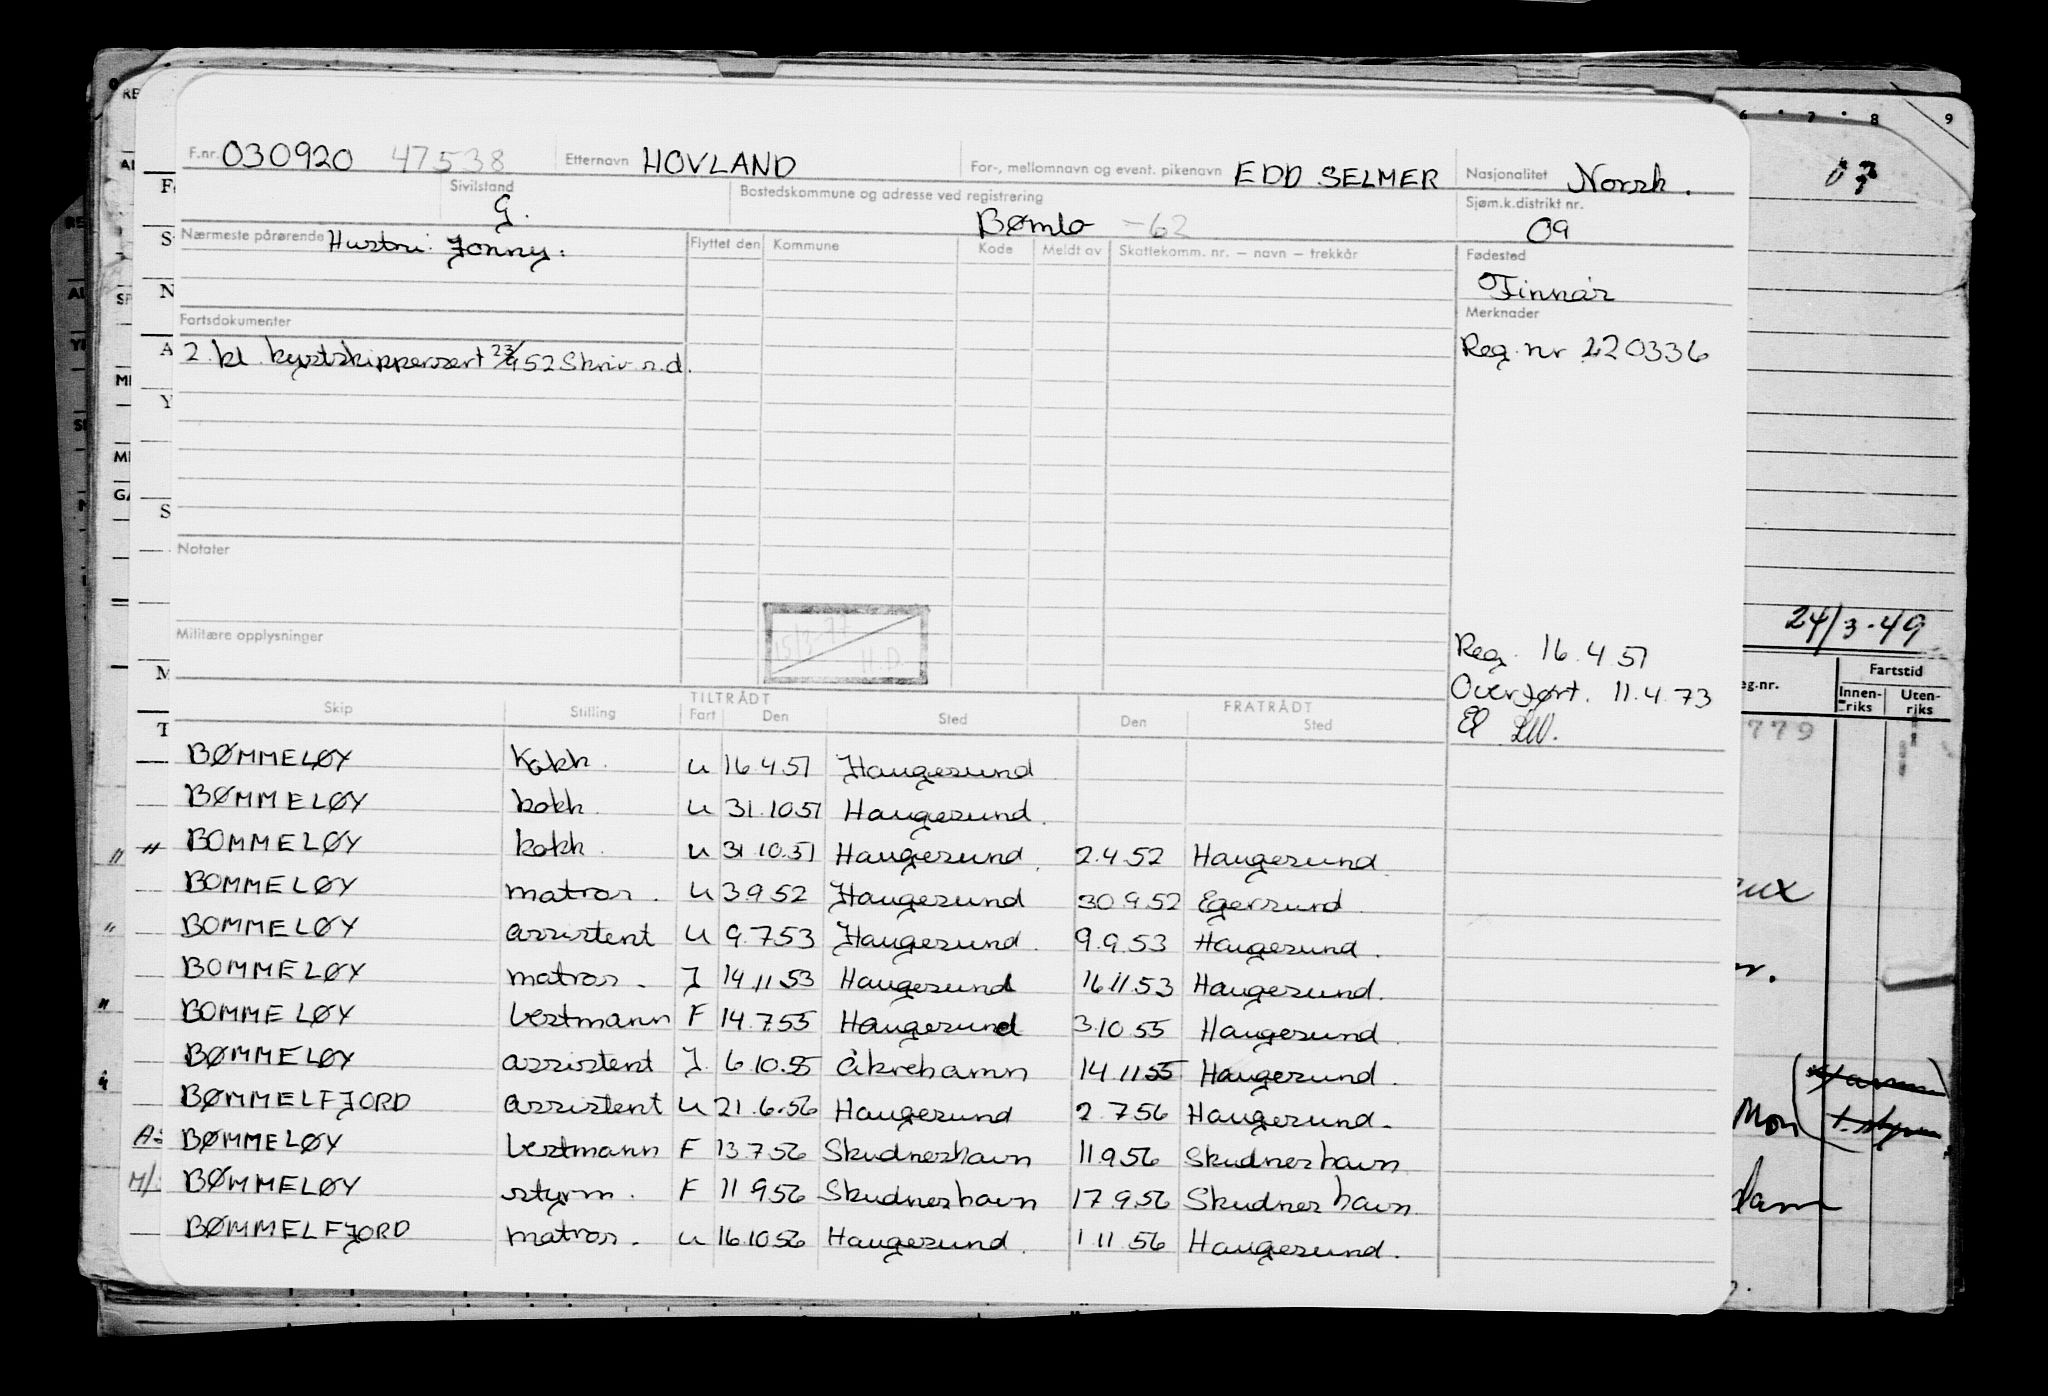 F.nr. 030920 47538 Etternavn HOVLAND For-, mellomnavn og event. pikenavn EDD SELMER Nasjonalitet Norsk.
Sivilstand G. Bostedskommune og adresse ved registrering Bømlo -62 Sjøm.k.distrikt nr. 09
Nærmeste pårørende Hustru: Jonny: Flyttet den Kommune Kode Meldt av Skattekomm. nr. – navn – trekkår Fødested
Finnås
Fartsdokumenter Merknader
2. kl. kystskippersert 23/9 52 Skriv s.d. Reg. nr 220336
Notater
15/3-77 H.D.
Militære opplysninger
Reg. 16.4.51
Overført. 11.4.73
TILTRÅDT FRATRÅDT
Skip Stilling Fart Den Sted Den Sted
BØMMELØY Kokk. U 16.4.51 Haugesund
BØMMELØY kokk. U 31.10.51 Haugesund.
BOMMELØY kokk. U 31.10.51 Haugesund. 2.4.52 Haugesund.
BOMMELØY matros. U 3.9.52 Haugesund 30.9.52 Egersund.
BOMMELØY assistent U 9.7.53 Haugesund. 9.9.53 Haugesund.
BOMMELØY matros. J 14.11.53 Haugesund 16.11.53 Haugesund.
BOMMELØY bestmann F 14.7.55 Haugesund 3.10.55 Haugesund.
BØMMELØY assistent J. 6.10.55 Åkrehamn 14.11.55 Haugesund.
BØMMELFJORD assistent U 21.6.56 Haugesund 2.7.56 Haugesund.
BØMMELØY bestmann F 13.7.56 Skudneshavn 11.9.56 Skudneshavn
BØMMELØY styrm. F 11.9.56 Skudneshavn 17.9.56 Skudneshavn.
BØMMELFJORD matros. U 16.10.56 Haugesund. 1.11.56 Haugesund.
6 7 8 9
24/3-49
Fartstid
eg.nr. Innen-riks Uten-riks
779